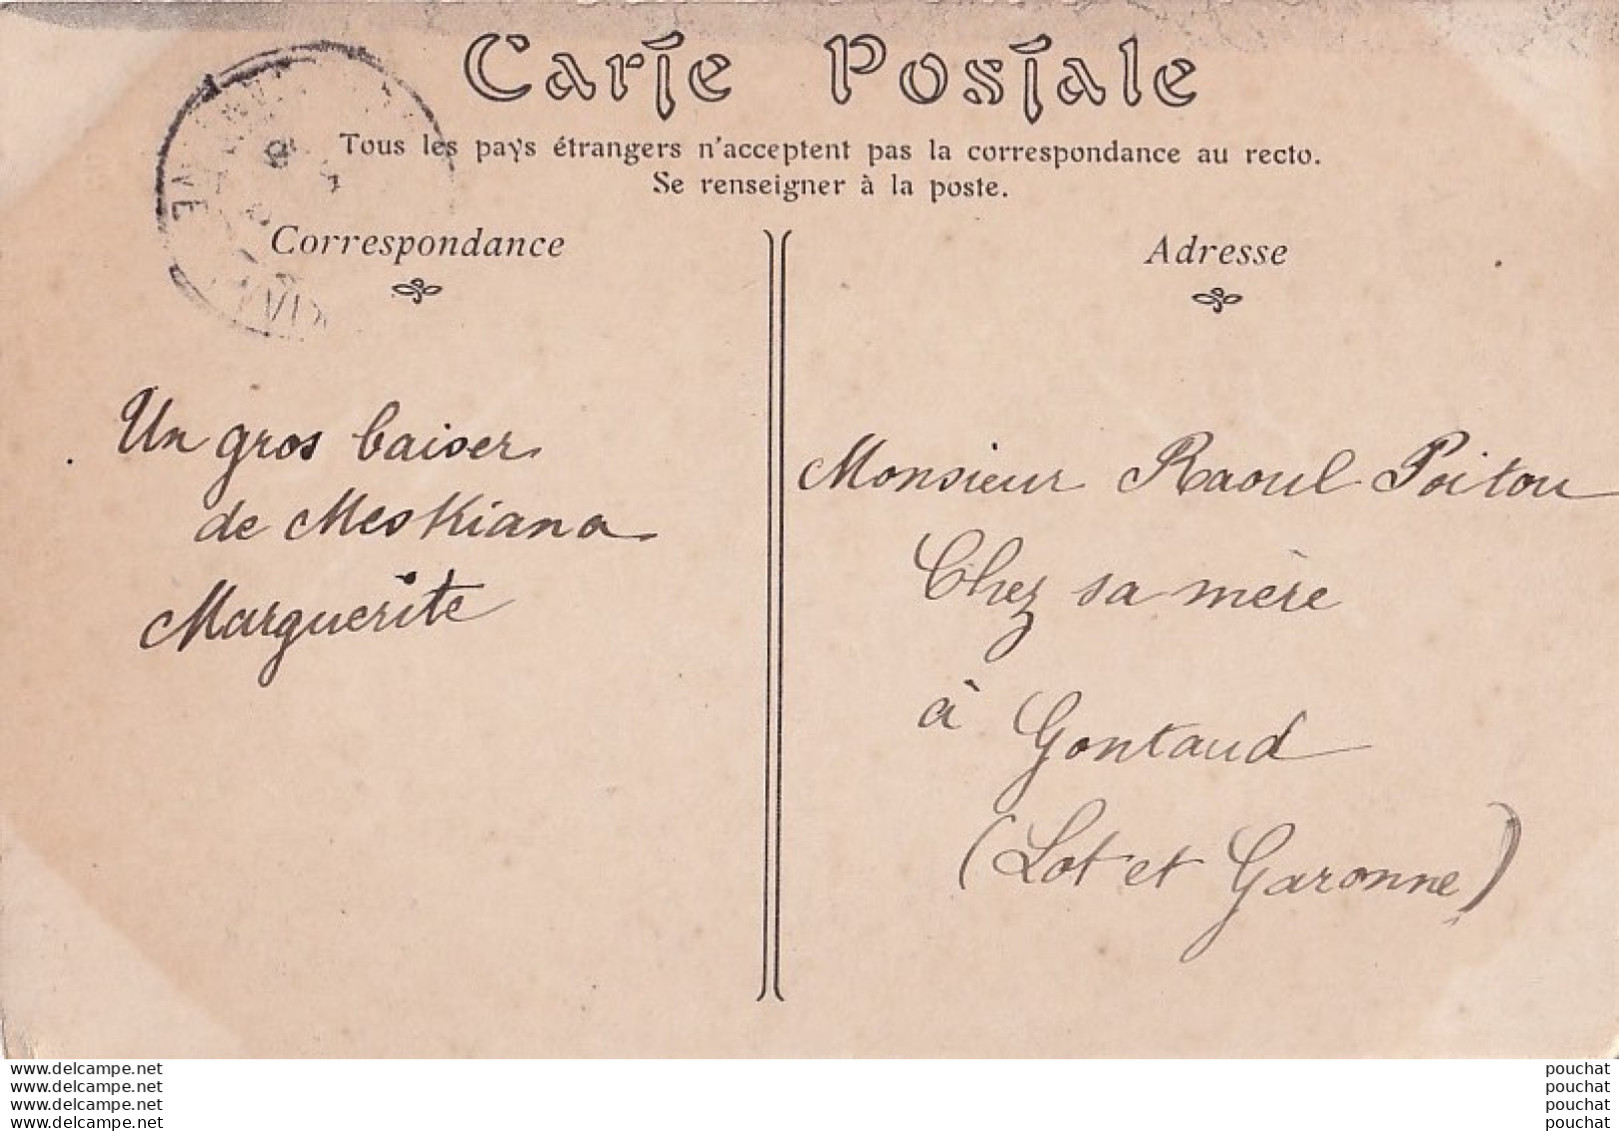 Carte Postale
Tous les pays étrangers n'acceptent pas la correspondance au recto.
Se renseigner à la poste.
Correspondance
Un gros baiser
de Meskiana
Marguerite
Adresse
Monsieur Raoul Poitou
Chez sa mère
à Gontaud
(Lot et Garonne)
www.delcampe.net
www.delcampe.net
www.delcampe.net
www.delcampe.net
pouchat
pouchat
pouchat
pouchat